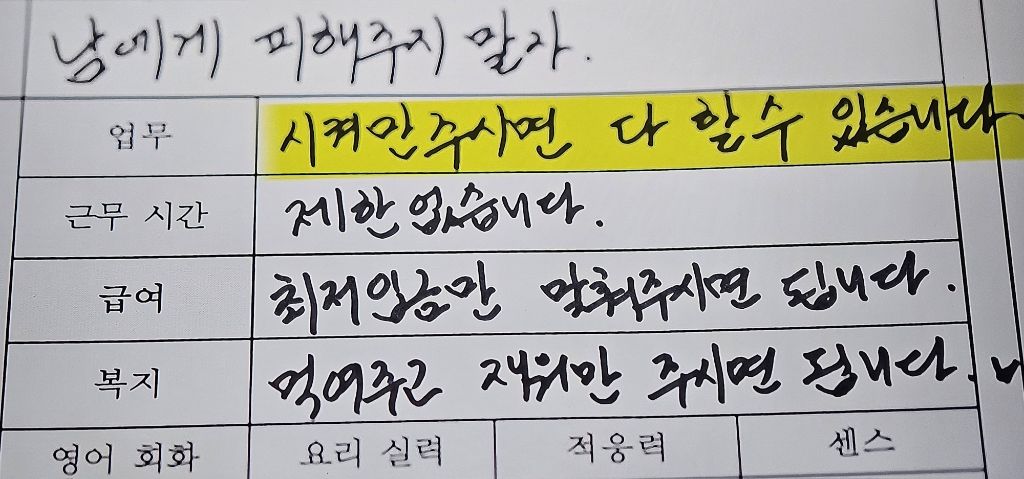 남에게 피해주지 말자.
업무 시켜만주시면 다 할수 있습니다.
근무 시간 제한없습니다.
급여 최저임금만 맞춰주시면 됩니다.
복지 먹여주고 재워만 주시면 됩니다.
영어 회화 요리 실력 적응력 센스